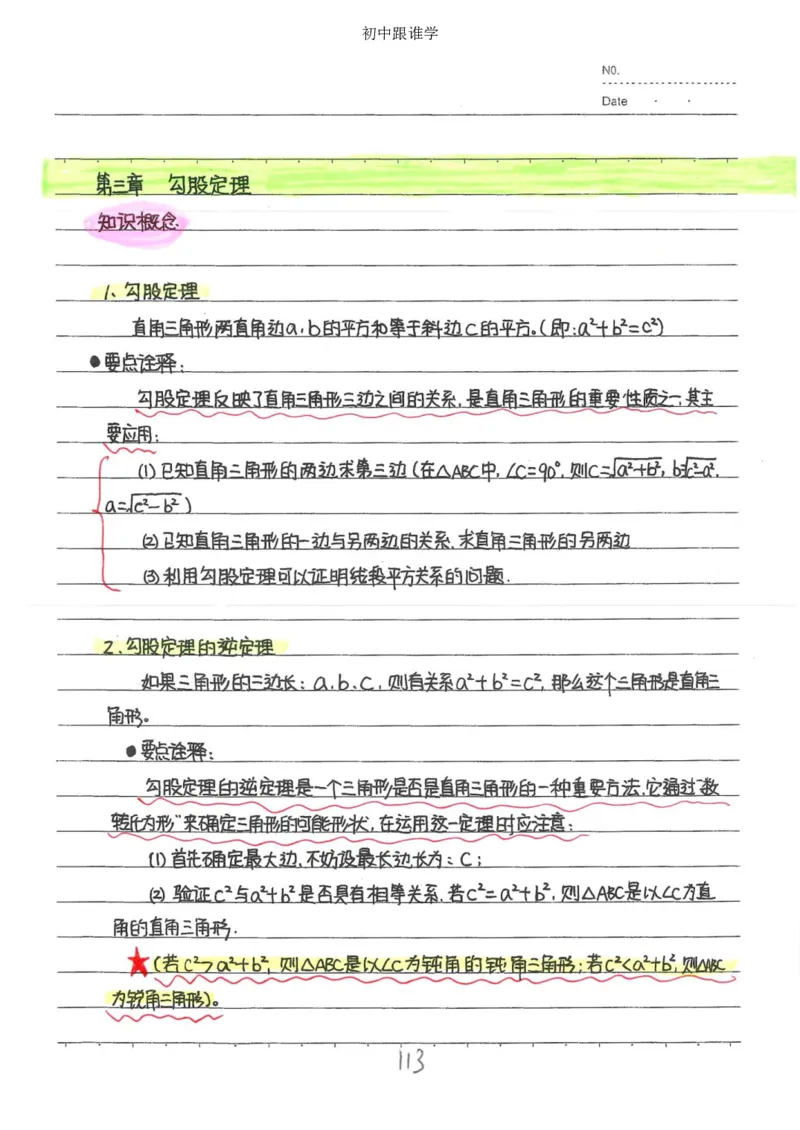 初中跟谁学
NO.
Date · ·
第三章 勾股定理
知识概念.
1、勾股定理
直角三角形两直角边a、b的平方和等于斜边c的平方。(即:a²+b²=c²)
●要点诠释:
勾股定理反映了直角三角形三边之间的关系,是直角三角形的重要性质之一,其主
要应用:
(1)已知直角三角形的两边求第三边(在△ABC中,∠C=90°,则C=√a²+b², b=√c²-a²,
a=√c²-b²)
(2)已知直角三角形的一边与另两边的关系,求直角三角形的另两边
(3)利用勾股定理可以证明线段平方关系的问题.
2、勾股定理的逆定理
如果三角形的三边长:a、b、c,则有关系a²+b²=c²,那么这个三角形是直角三
角形。
●要点诠释:
勾股定理的逆定理是一个三角形是否是直角三角形的一种重要方法,它通过“数
转化为形”来确定三角形的可能形状,在运用这一定理时应注意:
(1)首先确定最大边,不妨设最长边长为:C;
(2)验证C²与a²+b²是否具有相等关系,若C²=a²+b²,则△ABC是以∠C为直
角的直角三角形.
★(若C²>a²+b²,则△ABC是以∠C为钝角的钝角三角形;若C²<a²+b²,则△ABC
为锐角三角形)。
113